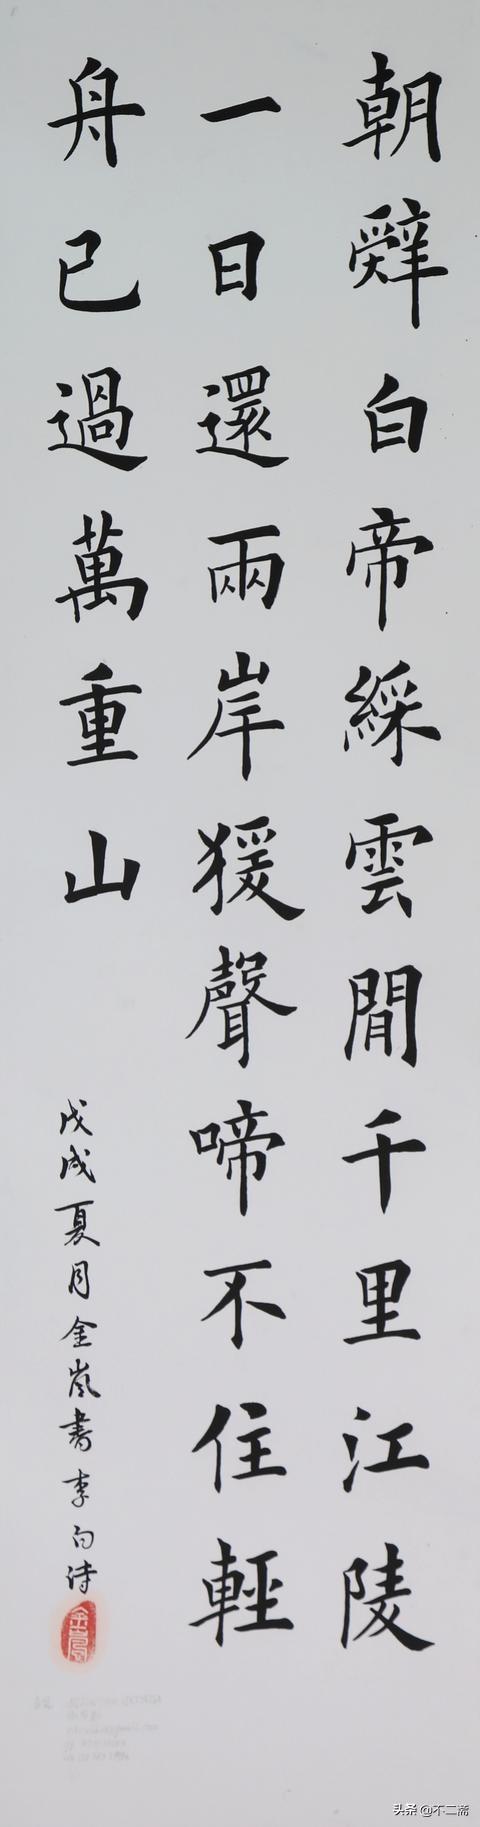 朝辤白帝綵雲間千里江陵
一日還兩岸猨聲啼不住輕
舟已過萬重山
戊戌夏月金嵐書李白詩
头条@不二斋